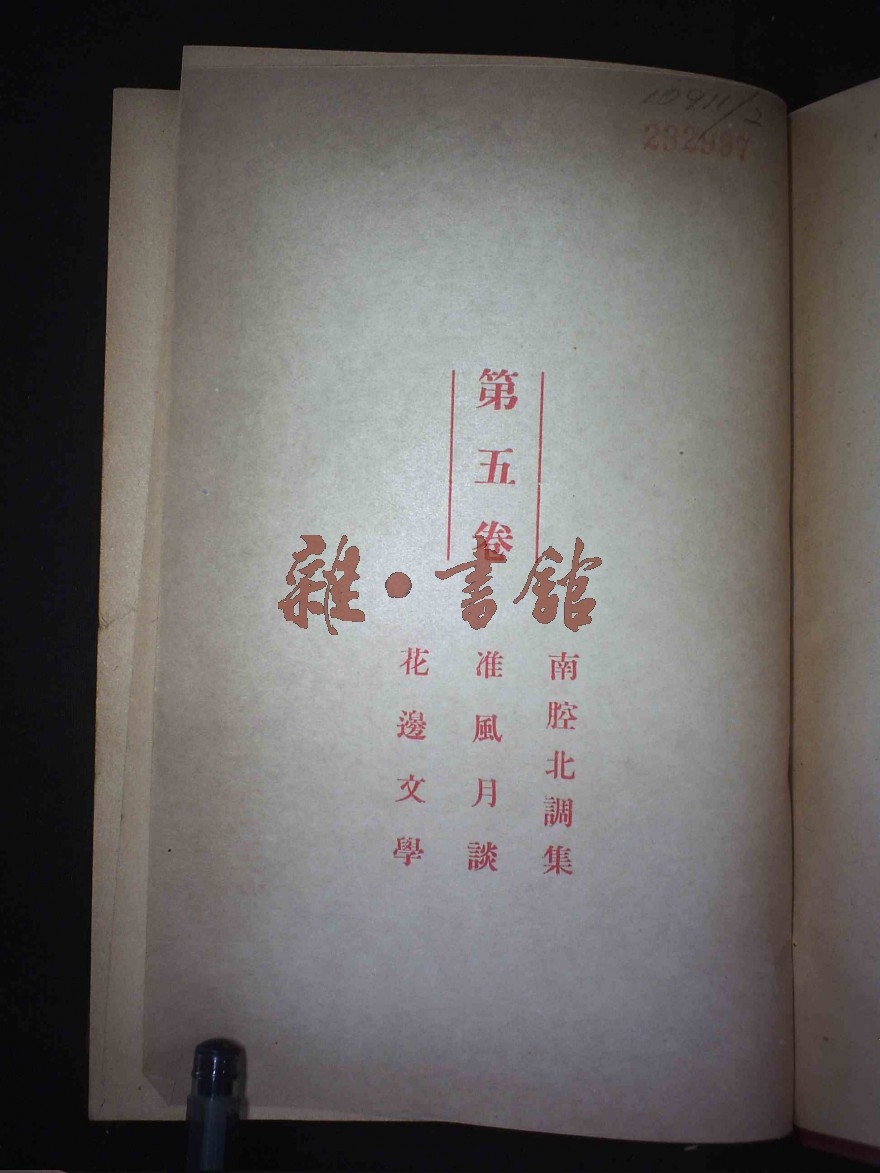 10911/2
282997
第五卷
南腔北調集
准風月談
花邊文學
雜·書館